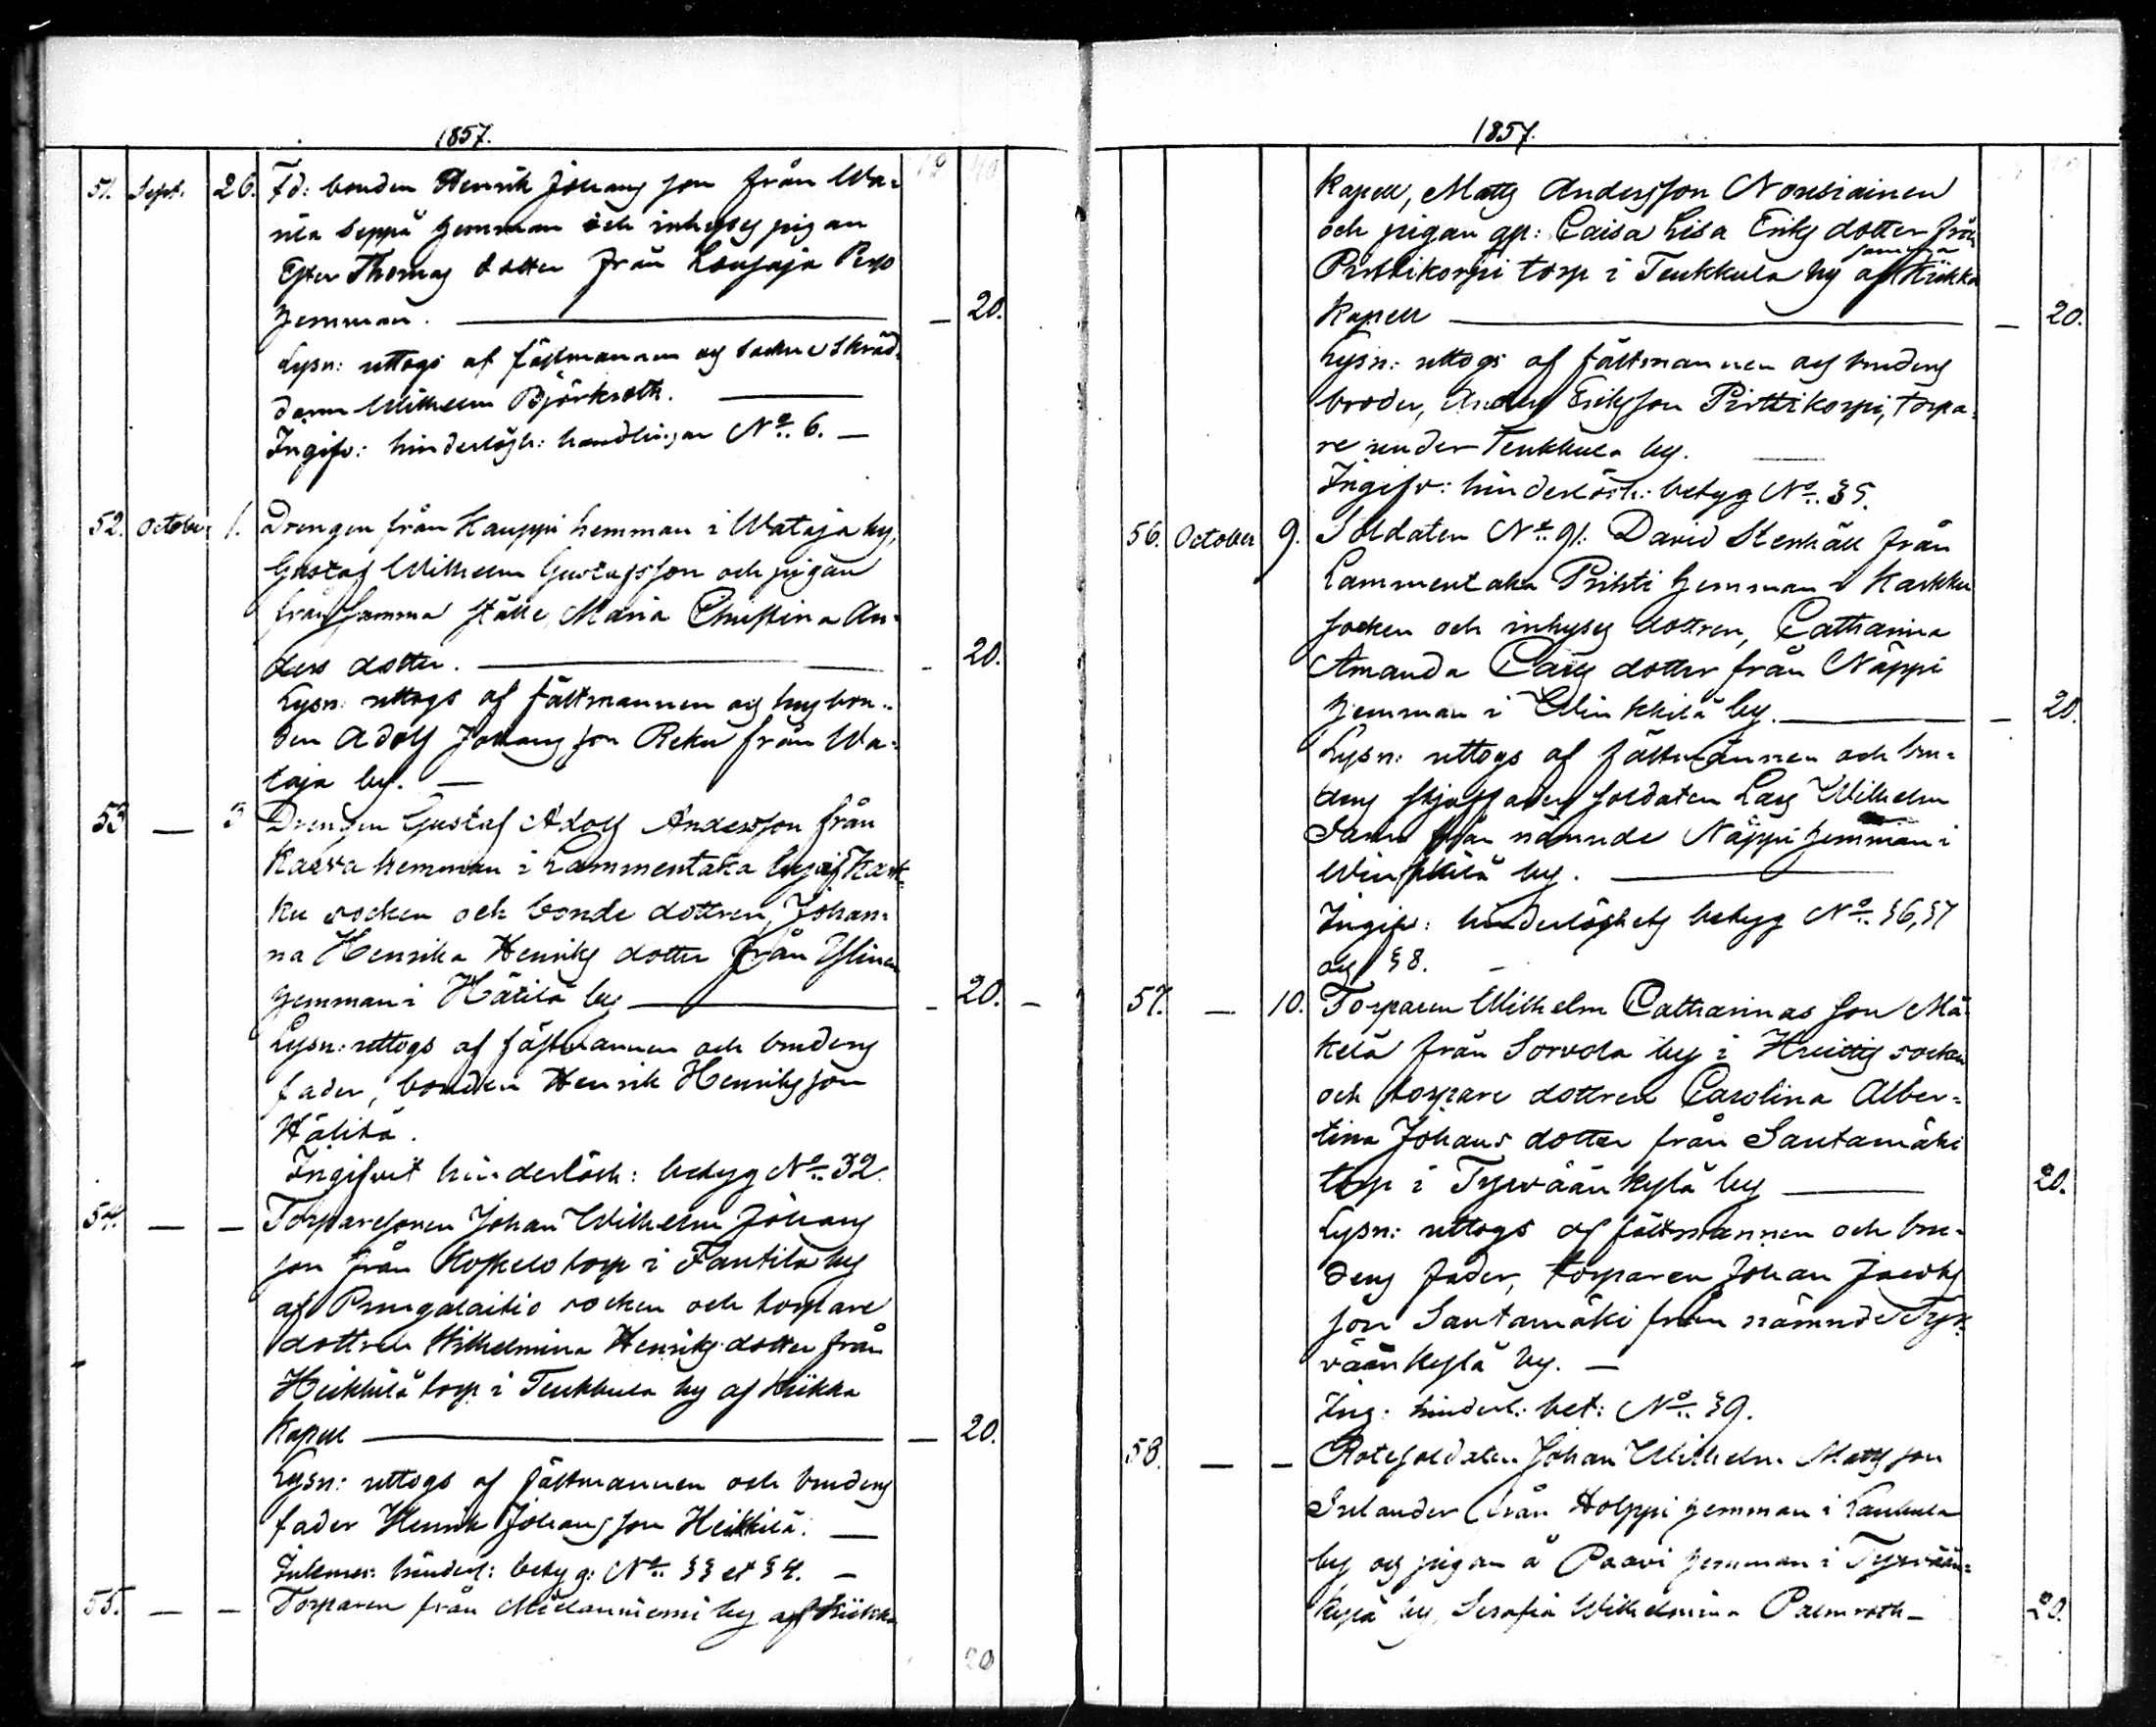 1857.
51. Sept. 26. Fd: bonden Henrik Johans son från Wa-
nila Seppä hemman och inhyses pigan
Ester Thomas dotter från Lousaja Perho
hemman. — — 20.
Lysn: uttogs af fästmannen og sockne skräd-
daren Wilhelm Björkroth. —
Ingifv: hinderlösh: handlingar No. 6. —
52. October 1. Drengen från Kauppi hemman i Wataja by,
Gustaf Wilhelm Gustafsson och pigan
från samma ställe, Maria Christina An-
ders dotter. — — 20.
Lysn: uttogs af fästmannen og husbon-
den Adolf Johans son Reku från Wa-
taja by. —
53 — 3 Drengen Gustaf Adolf Andersson från
Kasva hemman i Lammentaka by af Kark-
ku socken och bonde dottren, Johan-
na Henrika Henriks dotter från Ylinen
hemman i Hälilä by — — 20. —
Lysn: uttogs af fästmannen och brudens
fader, bonden Henrik Henriksson
Hälilä.
Ingifvit hinderlösh: betyg No. 32.
54. — — Torparesonen Johan Wilhelm Johans
son från Koskelo torp i Fantila by
af Pungalaitio socken och torpare
dottren Wilhelmina Henriks dotter från
Heikkilä torp i Teukkula by af Kiikka
Kapell — — 20.
Lysn: uttogs af fästmannen och brudens
fader Henrik Johansson Heikkilä. —
hinderl: betyg: No. 33 et 34. —
55. — — Torparen från by af Kiikka
20
1857.
Kapell, Matts Andersson Nousiainen
och pigan gp: Caisa Lisa Eriks dotter från
Pirttikorpi torp i Teukkula by af samma Kiikka
Kapell — — 20.
Lysn: uttogs af fästmannen og brudens
broder, Anders Eriksson Pirttikorpi, torpa-
re under Teukkula by. —
Ingifv: hinderlösh: betyg No. 35.
56. October 9. Soldaten No. 91. David Stenhäll från
Lammentaka Prihti hemman i Karkku
socken och inhyses dottren, Catharina
Amanda Lars dotter från Näppi
hemman i Winkkilä by. — — 20.
Lysn: uttogs af fästmannen och bru-
dens styffader soldaten Lars Wilhelm
från nämnde Näppi hemman i
Winkkilä by. —
Ingifv: hinderlöshets betyg No. 36, 37
og 38. —
57. — 10. Torparen Wilhelm Catharinas son Mä-
kelä från Sorvola by i Huittis socken
och torpare dottren Carolina Alber-
tina Johans dotter från Santamäki
torp i Tyrväänkylä by — 20.
Lysn: uttogs af fästmannen och bru-
dens fader, torparen Johan Jacobs
son Santamäki från nämnde Tyr-
väänkylä by. —
Ing: hinderl: bet: No. 39.
58. — — Rotesoldaten Johan Wilhelm Matts son
från Holppi hemman i Kaukula
by og pigan å Paavi hemman i Tyrvään-
kylä by, Serafia Wilhelmina Palmroth — 20.